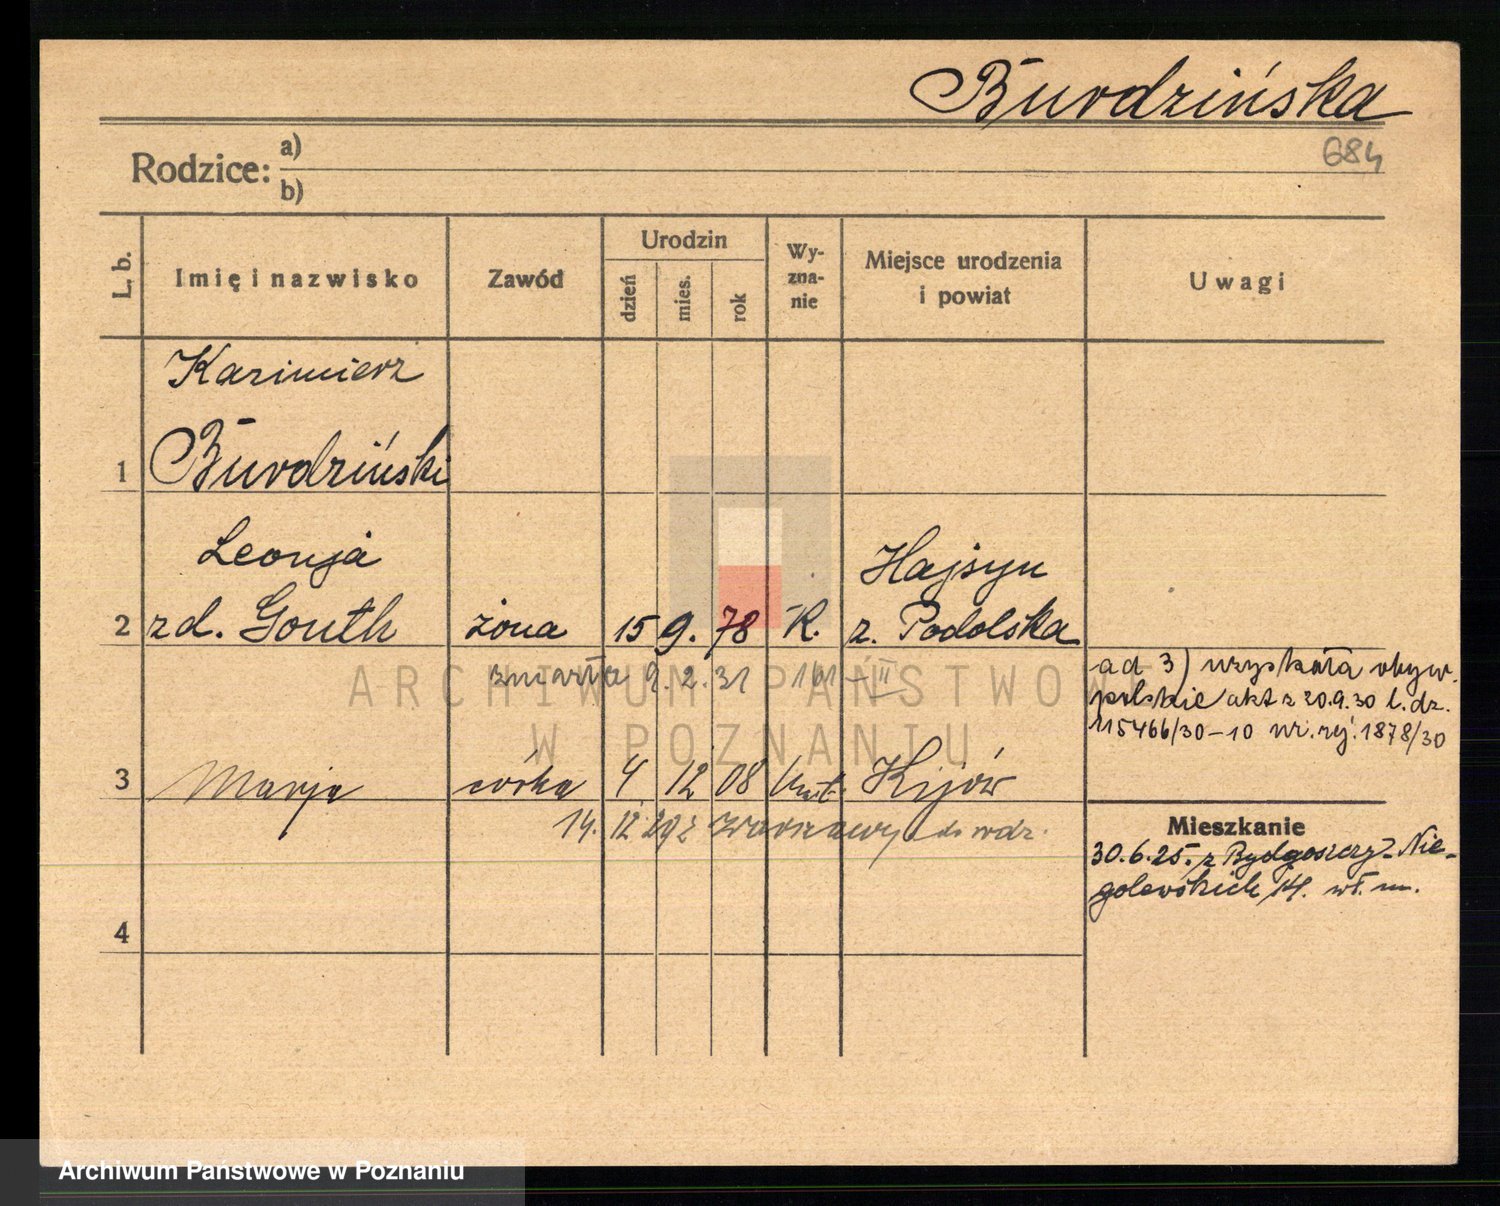 Burdzińska
684
Rodzice: a)
b)
L. b.
Imię i nazwisko
Zawód
Urodzin
dzień
mies.
rok
Wy-
zna-
nie
Miejsce urodzenia
i powiat
Uwagi
Kazimierz
1 Burdziński
Leonja Hajsyn
2 zd. Gouth żona 15 9. 78 K. z. Podolska
zmarła 9. 2. 31 161 – II
ad 3) uzyskała obyw.
polskie akt z 20.9.30 l. dz.
115466/30–10 nr. rej. 1878/30
3 Marja córka 4 12 08 kat. Kijów
14. 12. 29 z Warszawy do wdz.
Mieszkanie
30.6.25. z Bydgoszczy – Nie-
golewskich 14. wł. m.
4
ARCHIWUM PAŃSTWOWE
W POZNANIU
Archiwum Państwowe w Poznaniu